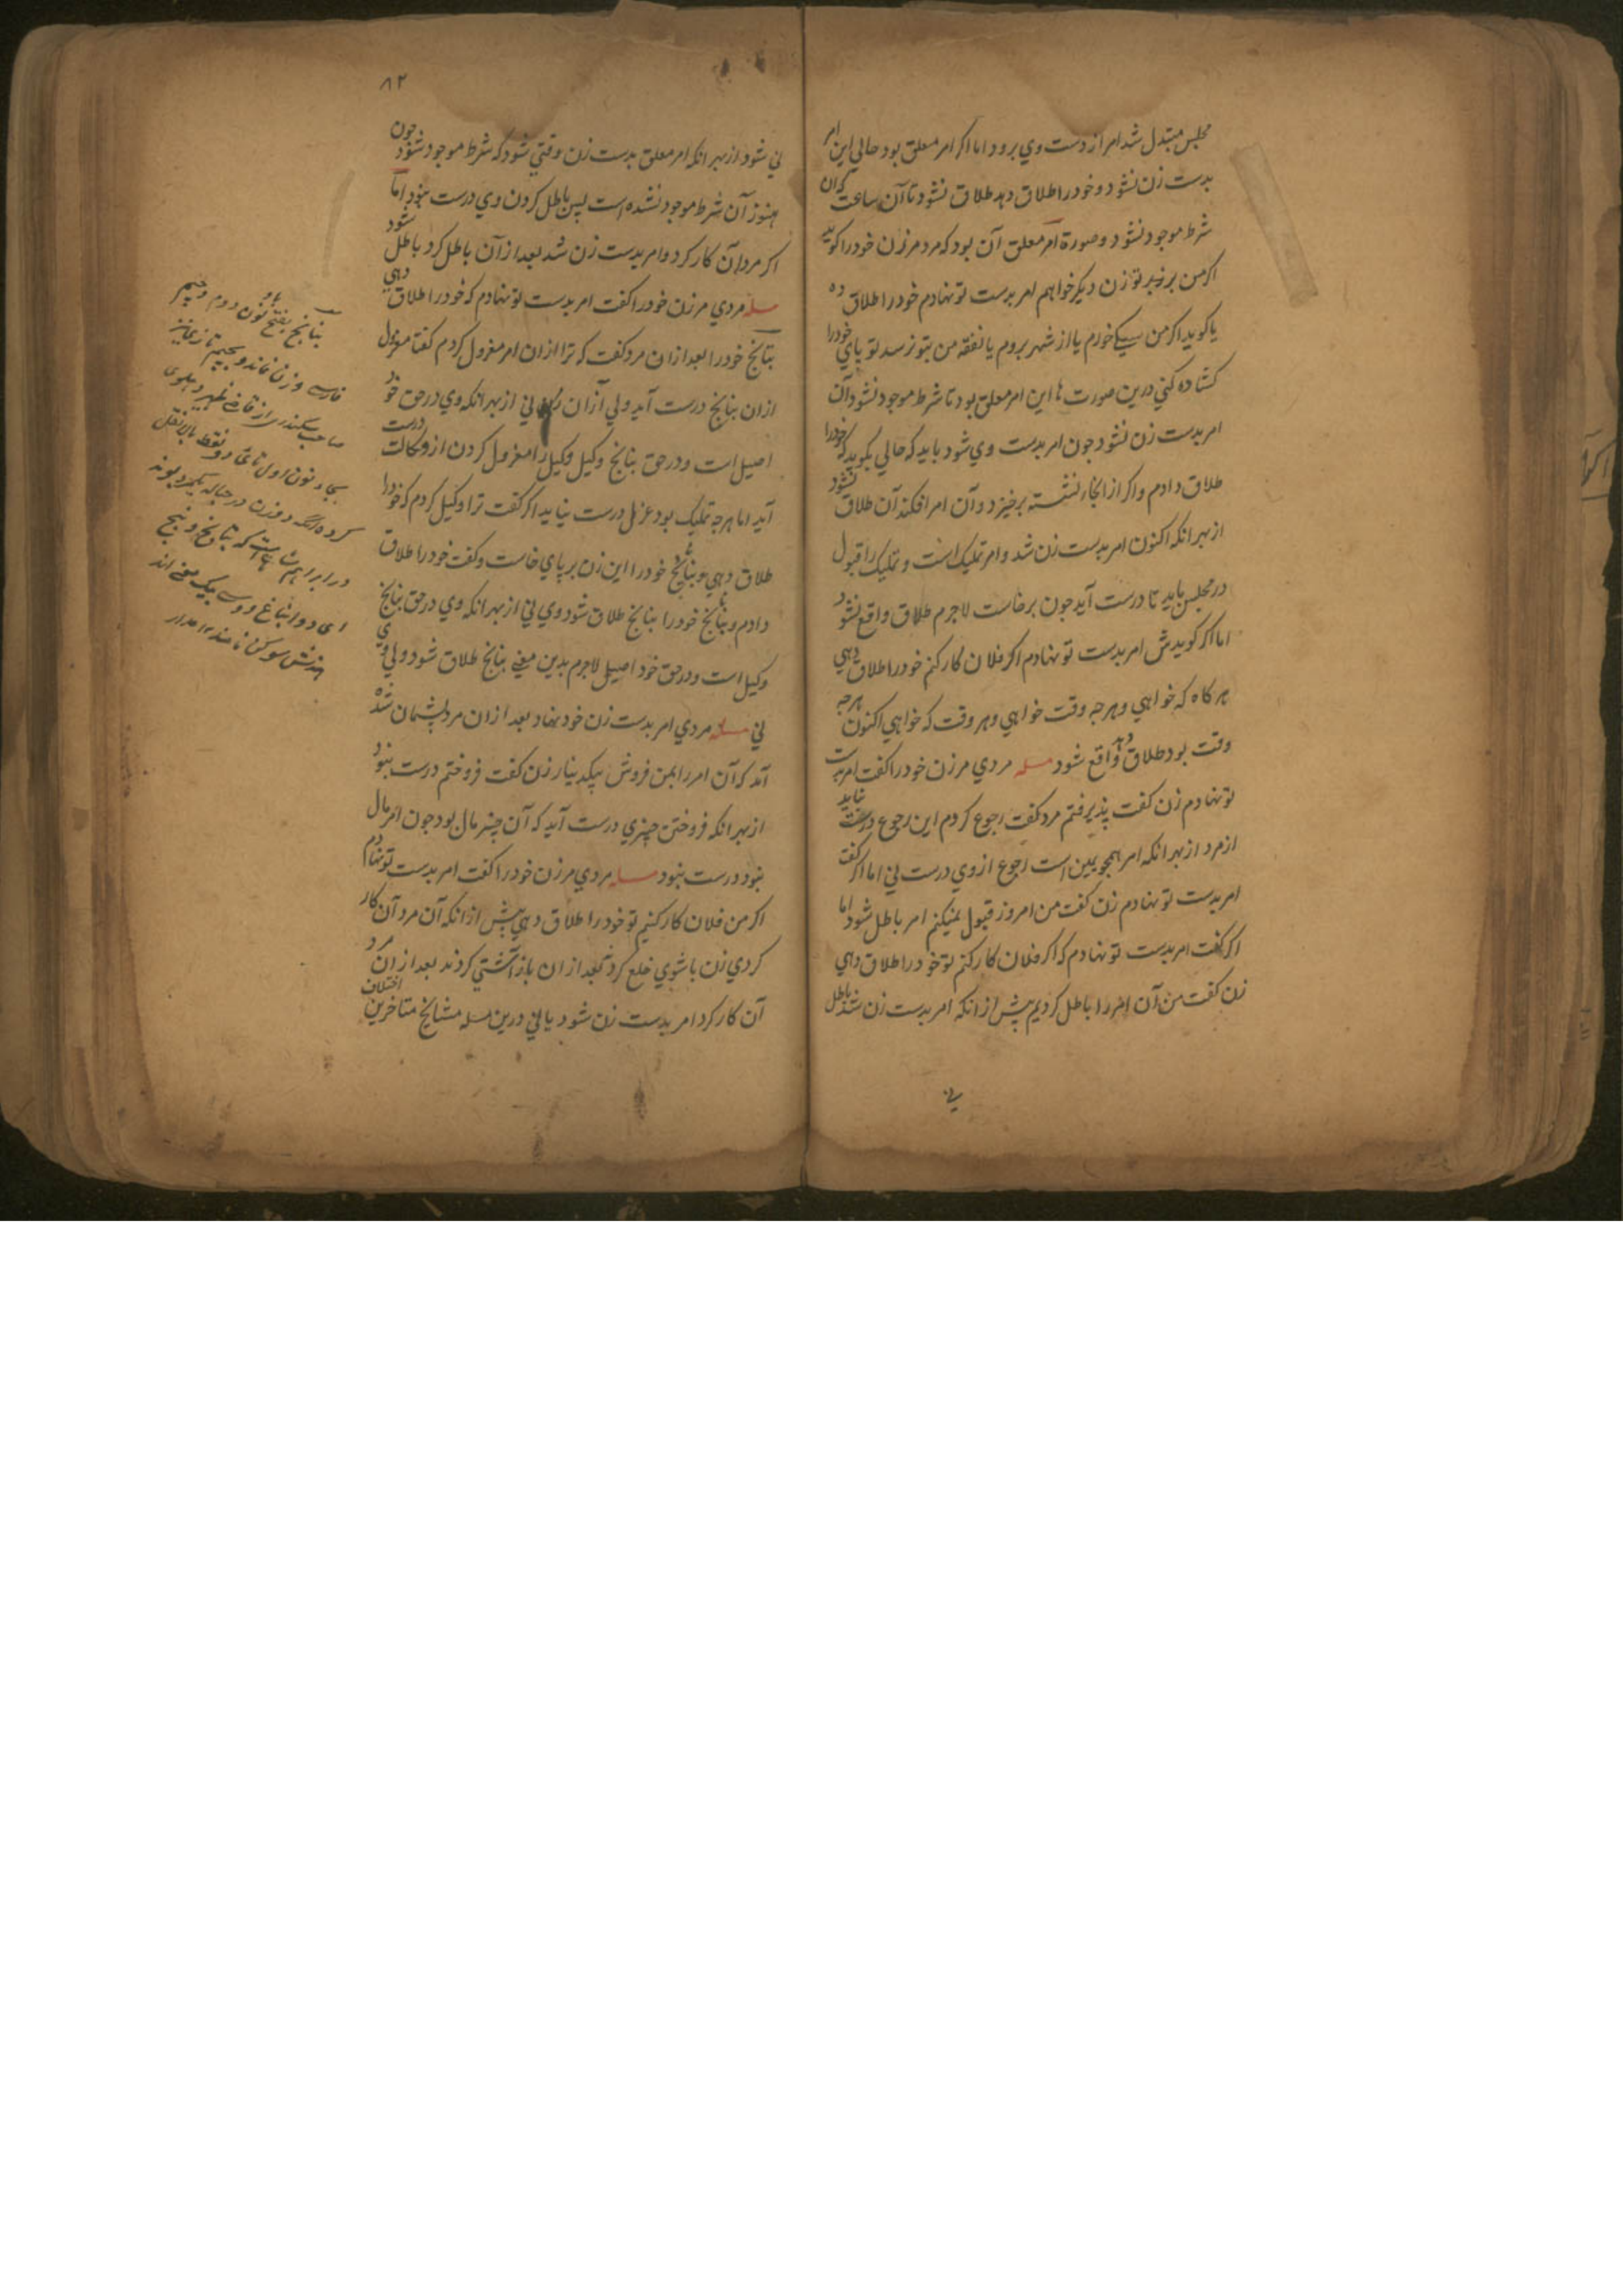 مجلس مبتدل شد امر از دست وي برود اما اکر امر معلق بود حالي اين امر
بدست زن نشود و خود را طلاق دهد طلاق نشود تا آن ساعت که ان
شرط موجود نشود و صورة امر معلق آن بود که مرد مر زن خود را کويد
اکر من بر تو زن ديکر خواهم امر بدست تو نهادم خود را طلاق ده
يا کويد اکر من سيکي خورم يا از شهر بروم يا نفقه من بتو نرسد تو پاي خود را
کشاده کني درين صورت ها اين امر معلق بود تا شرط موجود نشود آن
امر بدست زن نشود جون امر بدست وي شود بايد که حالي بکويد که خود را
طلاق دادم و اکر از انجا نشسته برخيزد و آن امر افکند آن طلاق نشود
از بهر انکه اکنون امر بدست زن شد و امر تمليک است و تمليک را قبول
در مجلس بايد تا درست آيد جون برخاست لاجرم طلاق واقع نشود
اما اکر کويدش امر بدست تو نهادم اکر فلان کار کنم خود را طلاق دهي
هر کاه که خواهي و هرجه وقت خواهي و هر وقت که خواهي اکنون هرجه
وقت بود طلاق دهد واقع شود مسله مردي مر زن خود را کفت امر بدست
تو نهادم زن کفت پذيرفتم مرد کفت رجوع کردم اين رجوع درست نيايد
از مرد از بهر انکه امر همجو يمين است رجوع از وي درست ني اما اکر کفت
امر بدست تو نهادم زن کفت من امروز قبول نميکنم امر باطل شود اما
اکر کفت امر بدست تو نهادم که اکر فلان کار کنم تو خود را طلاق دهي
زن کفت من آن امر را باطل کرديم پيش از انکه امر بدست زن شد باطل
ني
٨٢
ني شود از بهر انکه امر معلق بدست زن وقتي شود که شرط موجود شود جون
هنوز آن شرط موجود نشده است پس باطل کردن وي درست نبود اما
اکر مرد آن کار کرد و امر بدست زن شد بعد از آن باطل کرد باطل شود
مسله مردي مر زن خود را کفت امر بدست تو نهادم که خود را طلاق دهي
بنانج خود را بعد از ان مرد کفت که ترا از ان امر معزول کردم کفتا معزول
ازان بنانج درست آيد ولي ازان ني از بهر انکه وي در حق خود
اصيل است و در حق بنانج وکيل وکيل را معزول کردن از وکالت درست
آيد اما هرجه تمليک بود عزل درست نيايد اکر کفت ترا وکيل کردم که خود را
طلاق دهي و بنانج خود را اين زن بر پاي خاست و کفت خود را طلاق
دادم و بنانج خود را بنانج طلاق شود وي ني از بهر انکه وي در حق بنانج
وکيل است و در حق خود اصيل لاجرم بدين معني بنانج طلاق شود ولي وي
ني مسله مردي امر بدست زن خود نهاد بعد از ان مرد پشيمان شده
آمد که آن امر را بمن فروش بيکدينار زن کفت فروختم درست نبود
از بهر انکه فروختن چيزي درست آيد که آن چيز مال بود جون امر مال
نبود درست نبود مسله مردي مر زن خود را کفت امر بدست تو نهادم
اکر من فلان کار کنم تو خود را طلاق دهي پيش از انکه آن مرد آن کار
کردي زن با شوي خلع کرد بعد از ان باز آشتي کردند بعد از ان مرد
آن کار کرد امر بدست زن شود يا ني درين مسله مشايخ متاخرين اختلاف
بنانج بفتح با و نون دوم و جيم
فارسي و زن ماند و بجيم تازي نيز
صاحب سکندري از قاضي ظهير دهلوي
بجاء نون اول تاي دو نقطه بالا نقل
کرده انکه دو زن در حباله يکمرد بوند
در ابراهيم شاهي است که بنانج و
اي دو انباغ و وسني بيک معني اند
هندش سوکن نامند ۱۲ مدار